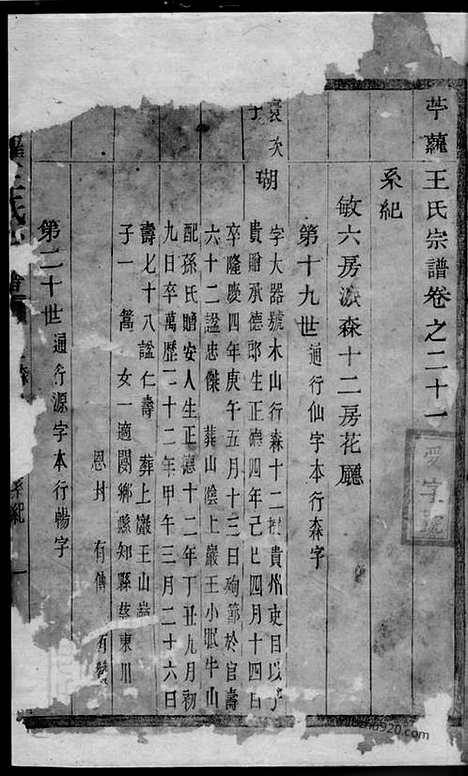 苧蘿王氏宗譜卷之二十一
系紀
敏六房派森十二房花廳
第十九世通行仙字本行森字
袁次子
瑚
字大器號木山行森十二 貴州吏目以子
貴贈承德郎生正德四年己巳四月十四日
卒隆慶四年庚午五月十三日殉節於官壽
六十二諡忠傑 葬山陰上巖王小眠牛山
配孫氏贈安人生正德十二年丁丑九月初
九日卒萬歷二十二年甲午三月二十六日
壽七十八諡仁壽 葬上巖王山
子一 篙 女一適閿鄉縣知縣蔡東川
恩封 有傳 有
第二十世通行源字本行暢字
王氏
系紀
一
愛字號
www.bang920.com